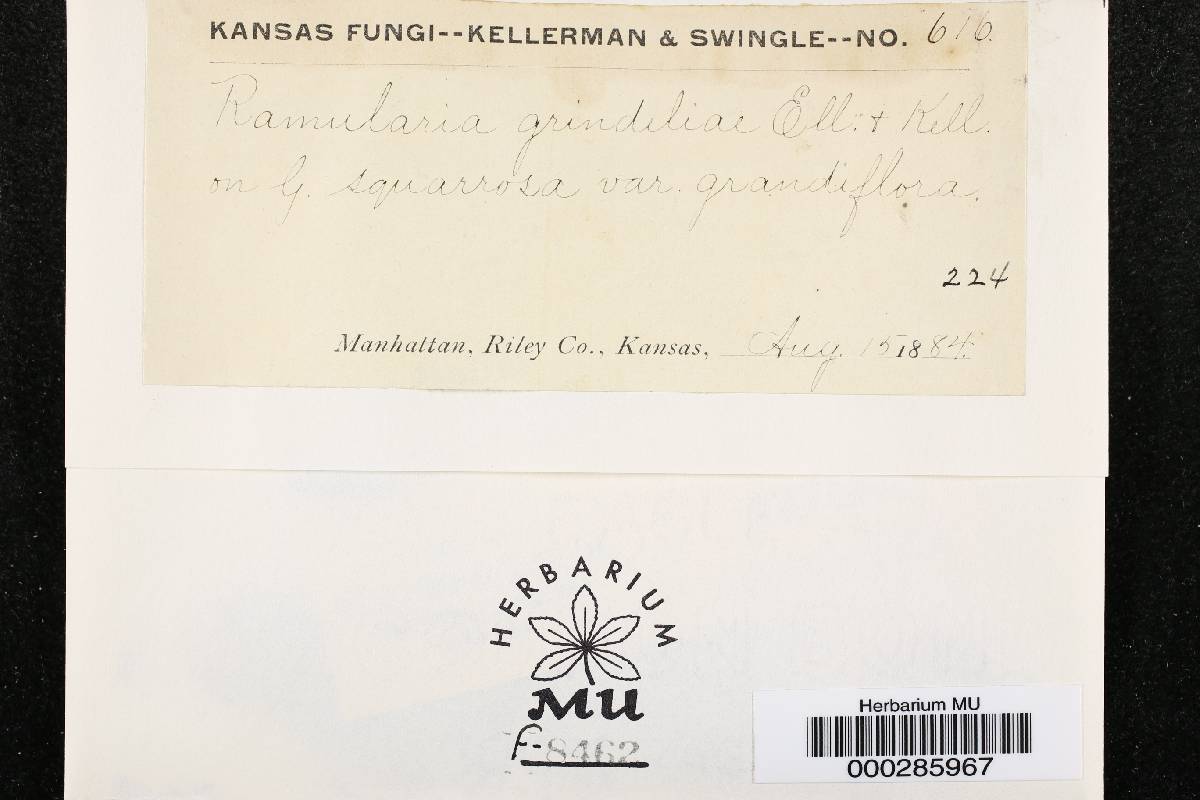 KANSAS FUNGI--KELLERMAN & SWINGLE--NO. 616.
Ramularia grindeliae Ell. & Kell.
on G. squarrosa var. grandiflora.
224
Manhattan, Riley Co., Kansas, Aug. 15 1884.
HERBARIUM
MU
F-8462
Herbarium MU
000285967